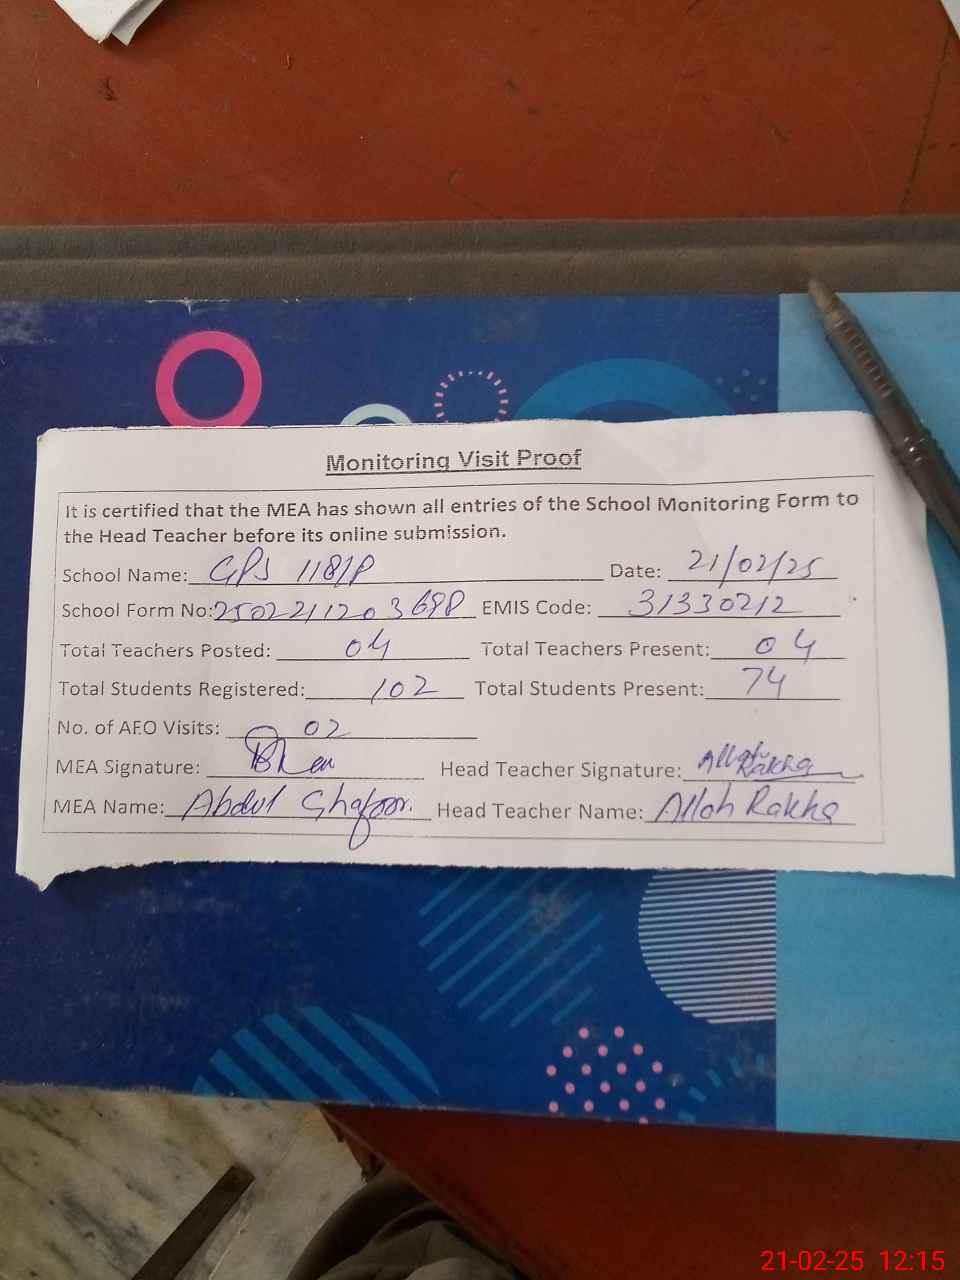 Monitoring Visit Proof
It is certified that the MEA has shown all entries of the School Monitoring Form to
the Head Teacher before its online submission.
School Name: GPS 118/P Date: 21/02/25
School Form No: 2502211203698 EMIS Code: 31330212
Total Teachers Posted: 04 Total Teachers Present: 04
Total Students Registered: 102 Total Students Present: 74
No. of AEO Visits: 02
MEA Signature: Head Teacher Signature: Allah Rakha
MEA Name: Abdul Ghafoor. Head Teacher Name: Allah Rakha
21-02-25 12:15